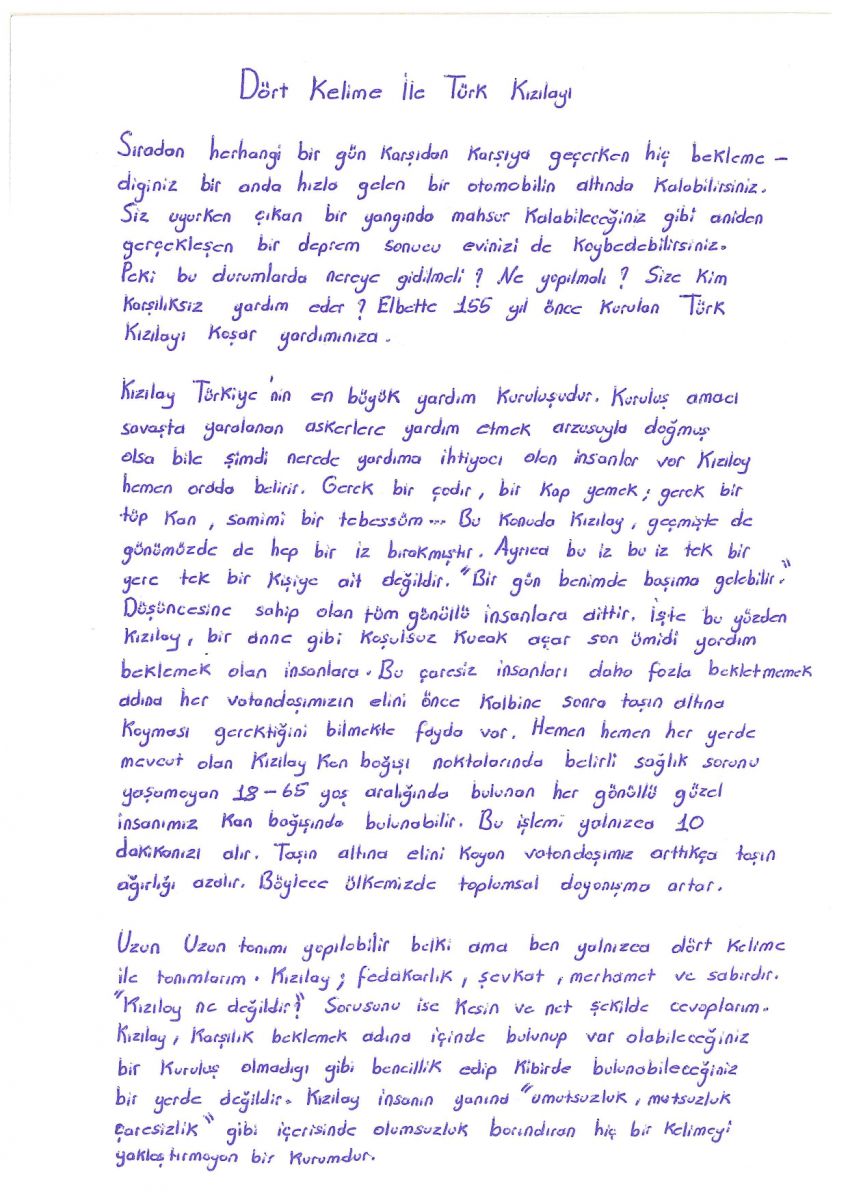 Dört Kelime İle Türk Kızılayı
Sıradan herhangi bir gün karşıdan karşıya geçerken hiç bekleme -
diginiz bir anda hızla gelen bir otomobilin altında kalabilirsiniz.
Siz uyurken çıkan bir yangında mahsur kalabileceğiniz gibi aniden
gerçekleşen bir deprem sonucu evinizi de kaybedebilirsiniz.
Peki bu durumlarda nereye gidilmeli ? Ne yapılmalı ? Size kim
karşılıksız yardım eder ? Elbette 155 yıl önce kurulan Türk
Kızılayı koşar yardımınıza.
Kızılay Türkiye'nin en büyük yardım kuruluşudur. Kuruluş amacı
savaşta yaralanan askerlere yardım etmek arzusuyla doğmuş
olsa bile şimdi nerede yardıma ihtiyacı olan insanlar var Kızılay
hemen orada belirir. Gerek bir çadır, bir kap yemek; gerek bir
tüp kan, samimi bir tebessüm... Bu konuda Kızılay, geçmişte de
günümüzde de hep bir iz bırakmıştır. Ayrıca bu iz bu iz tek bir
yere tek bir kişiye ait değildir. "Bir gün benimde başıma gelebilir."
Düşüncesine sahip olan tüm gönüllü insanlara aittir. İşte bu yüzden
Kızılay, bir anne gibi koşulsuz kucak açar son ümidi yardım
beklemek olan insanlara. Bu çaresiz insanları daha fazla bekletmemek
adına her vatandaşımızın elini önce kalbine sonra taşın altına
koyması gerektiğini bilmekte fayda var. Hemen hemen her yerde
mevcut olan Kızılay kan bağışı noktalarında belirli sağlık sorunu
yaşamayan 18-65 yaş aralığında bulunan her gönüllü güzel
insanımız kan bağışında bulunabilir. Bu işlemi yalnızca 10
dakikanızı alır. Taşın altına elini koyan vatandaşımız arttıkça taşın
ağırlığı azalır. Böylece ülkemizde toplumsal dayanışma artar.
Uzun Uzun tanımı yapılabilir belki ama ben yalnızca dört kelime
ile tanımlarım. Kızılay; fedakarlık, şevkat, merhamet ve sabırdır.
"Kızılay ne değildir?" Sorusunu ise kesin ve net şekilde cevaplarım.
Kızılay, karşılık beklemek adına içinde bulunup var olabileceğiniz
bir kuruluş olmadıgı gibi bencillik edip kibirde bulunabileceğiniz
bir yerde değildir. Kızılay insanın yanına "umutsuzluk, mutsuzluk
çaresizlik" gibi içerisinde olumsuzluk barındıran hiç bir kelimeyi
yaklaştırmayan bir kurumdur.